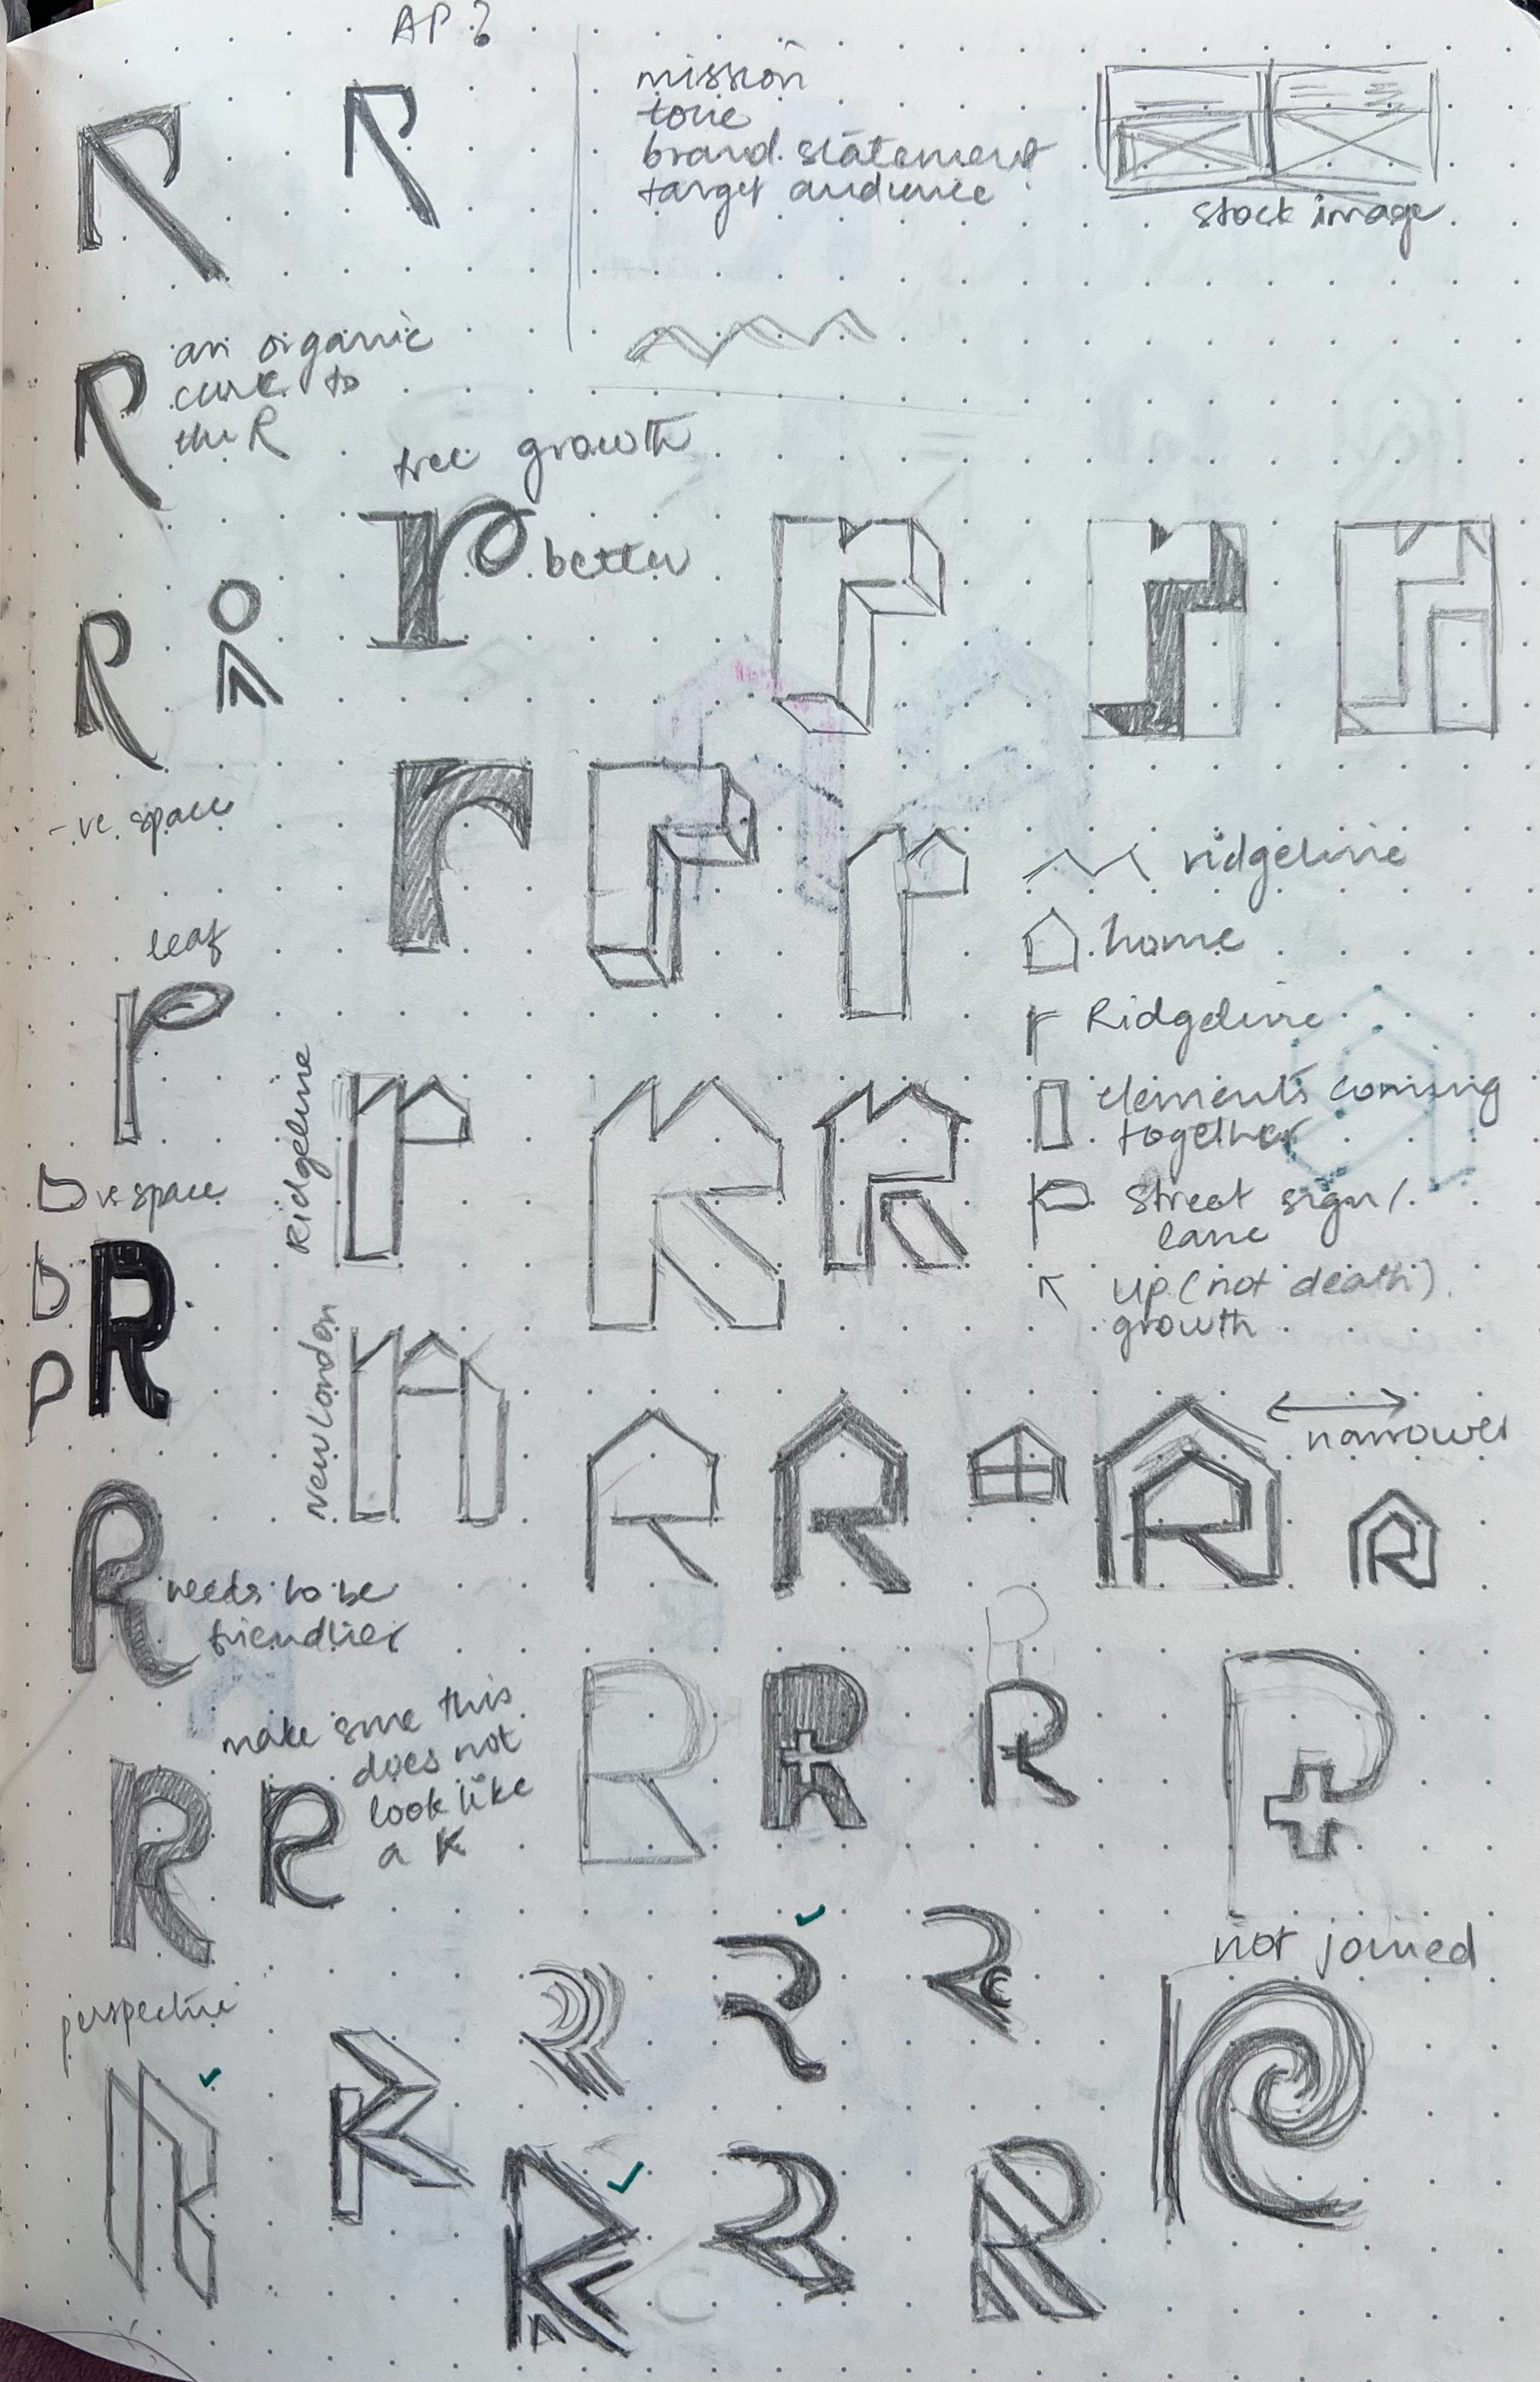 AP?
mission
tone
brand statement
target audience
stock image
an organic
curve to
the R
tree growth
better
-ve space
ridgeline
leaf
home
Ridgeline
Ridgeline
elements coming
together
ve space
street sign/
lane
up (not death)
growth
New London
narrower
needs to be
friendlier
make sure this
does not
look like
a K
not joined
perspective